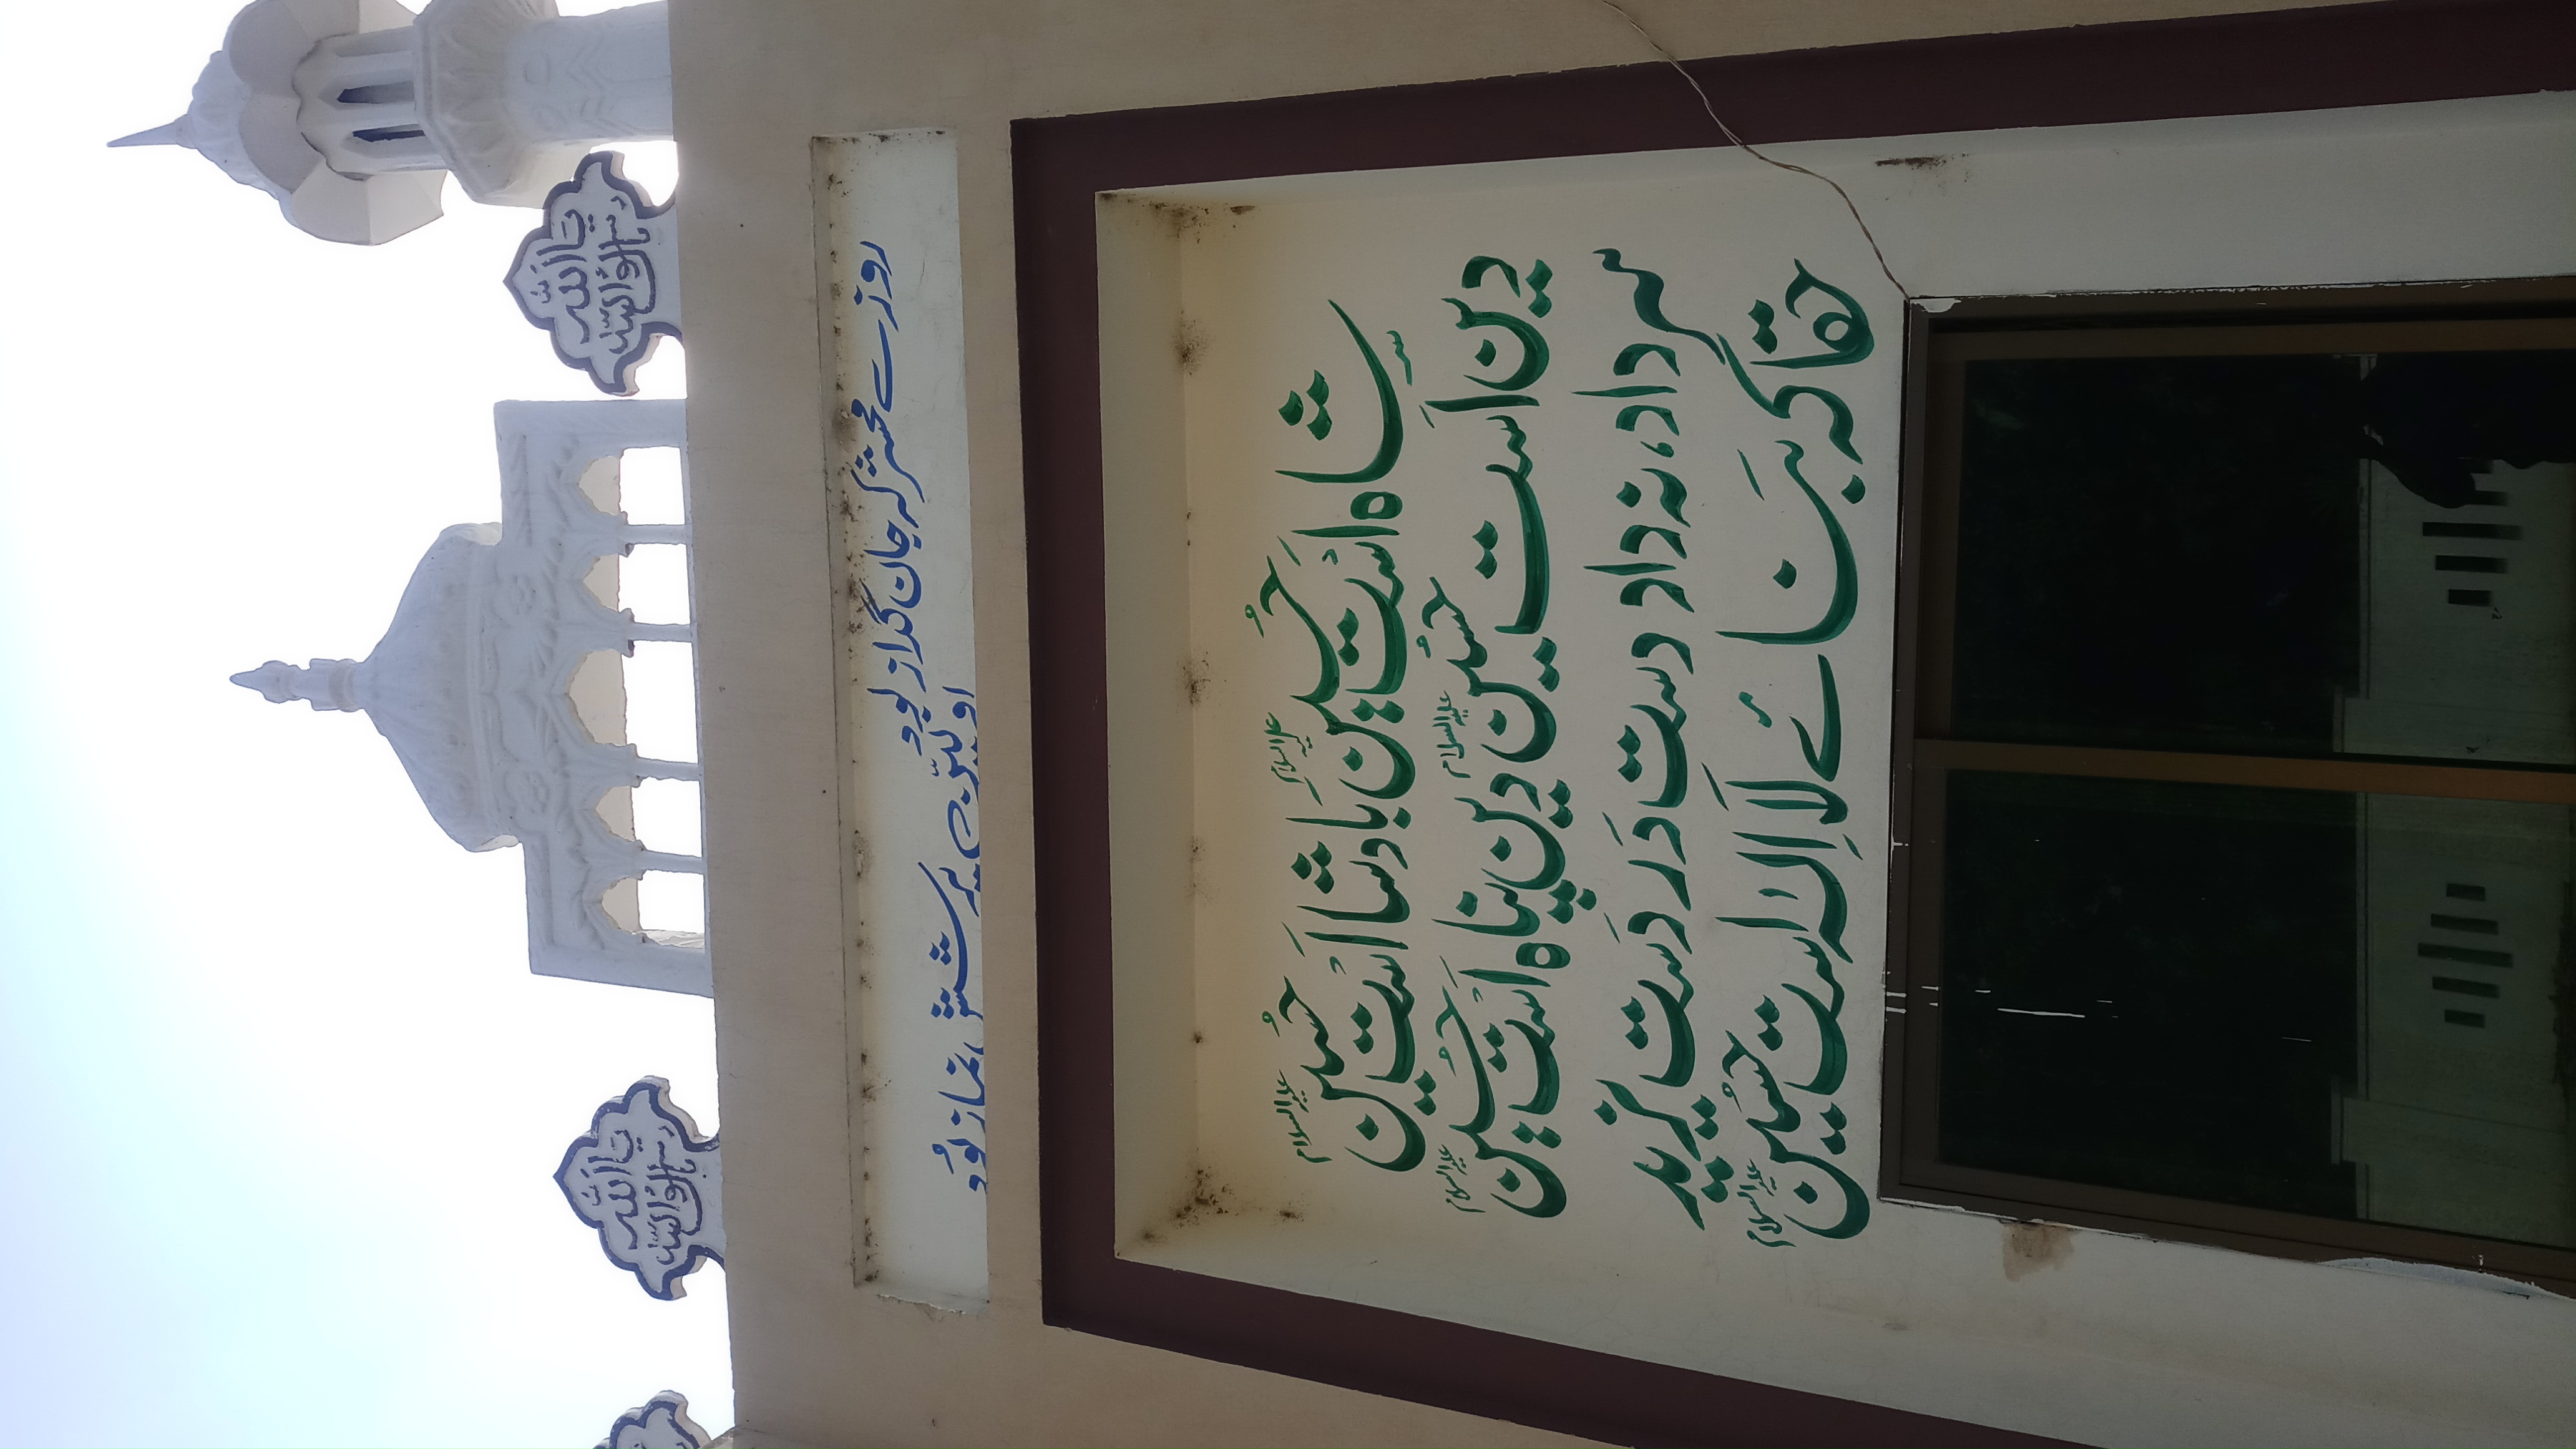 یَا اَللہُ
یَا اَللہُ
روزے محشر کہ جان گداز بود
اولیّں پرسشش نماز بُود
شاہ اَسْت حُسین علیہ السلام بادشا اَسْت حُسین علیہ السلام
دین اَست حسُین علیہ السلام دین پناہ اَسْت حُسین علیہ السلام
سر داد، نہ داد دست دَر دَست یزید
حقا کہ بنَائے لَا اِلہ است حسُین علیہ السلام